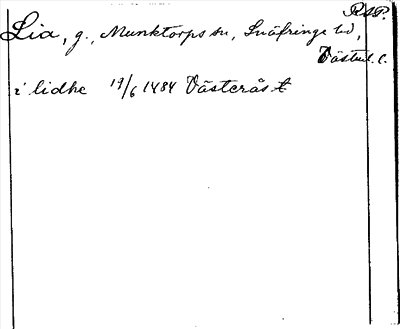 RAP.
Lia, g., Munktorps sn, Snäfringe hd,
Västml. l.
i lidhe 17/6 1484 Västerås t